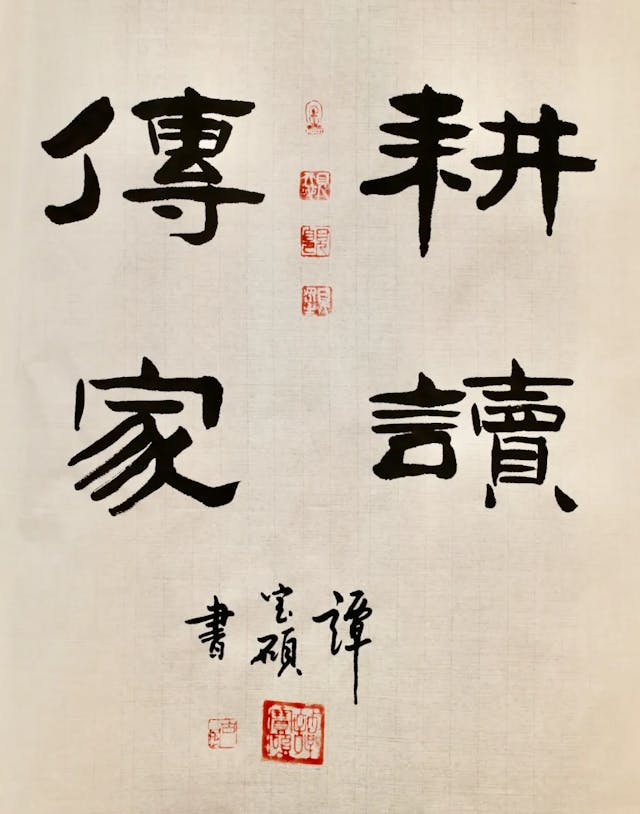 耕讀
傳家
譚寶碩書